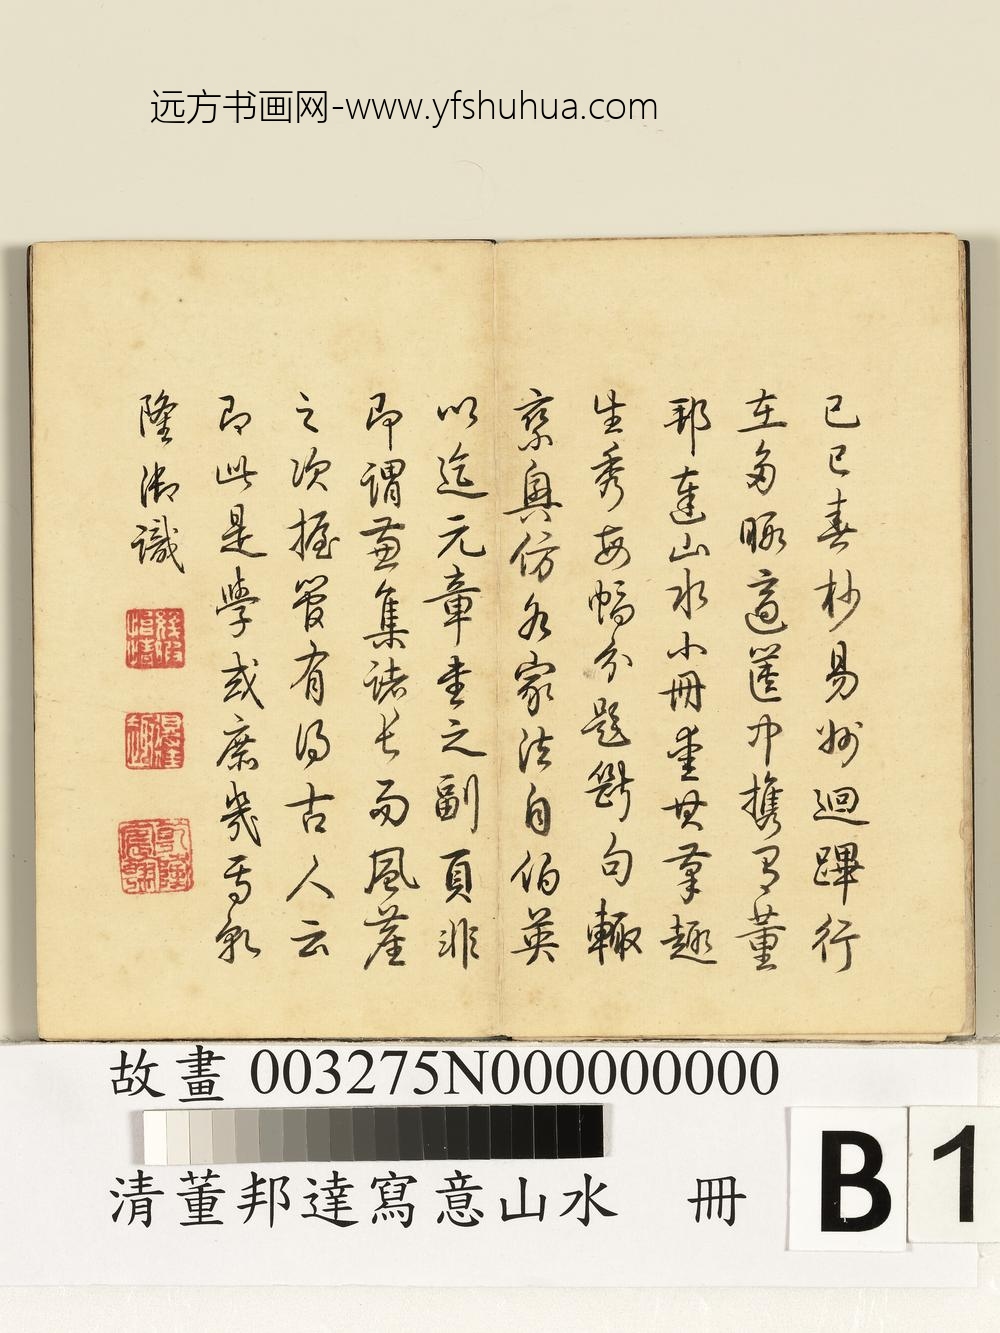 远方书画网-www.yfshuhua.com
己巳春杪易州迴蹕行
在多暇適篋中携有董
邦達山水小冊愛其筆趣
生秀每幅分題斷句輙
察輿仿各家法自伯英
以迄元章書之副頁非
即謂萬集諸長而風簷
之次握管有得古人云
即此是學或庶幾焉乾
隆御識
乾隆宸翰
故畫 003275N000000000
清董邦達寫意山水 冊
B 1